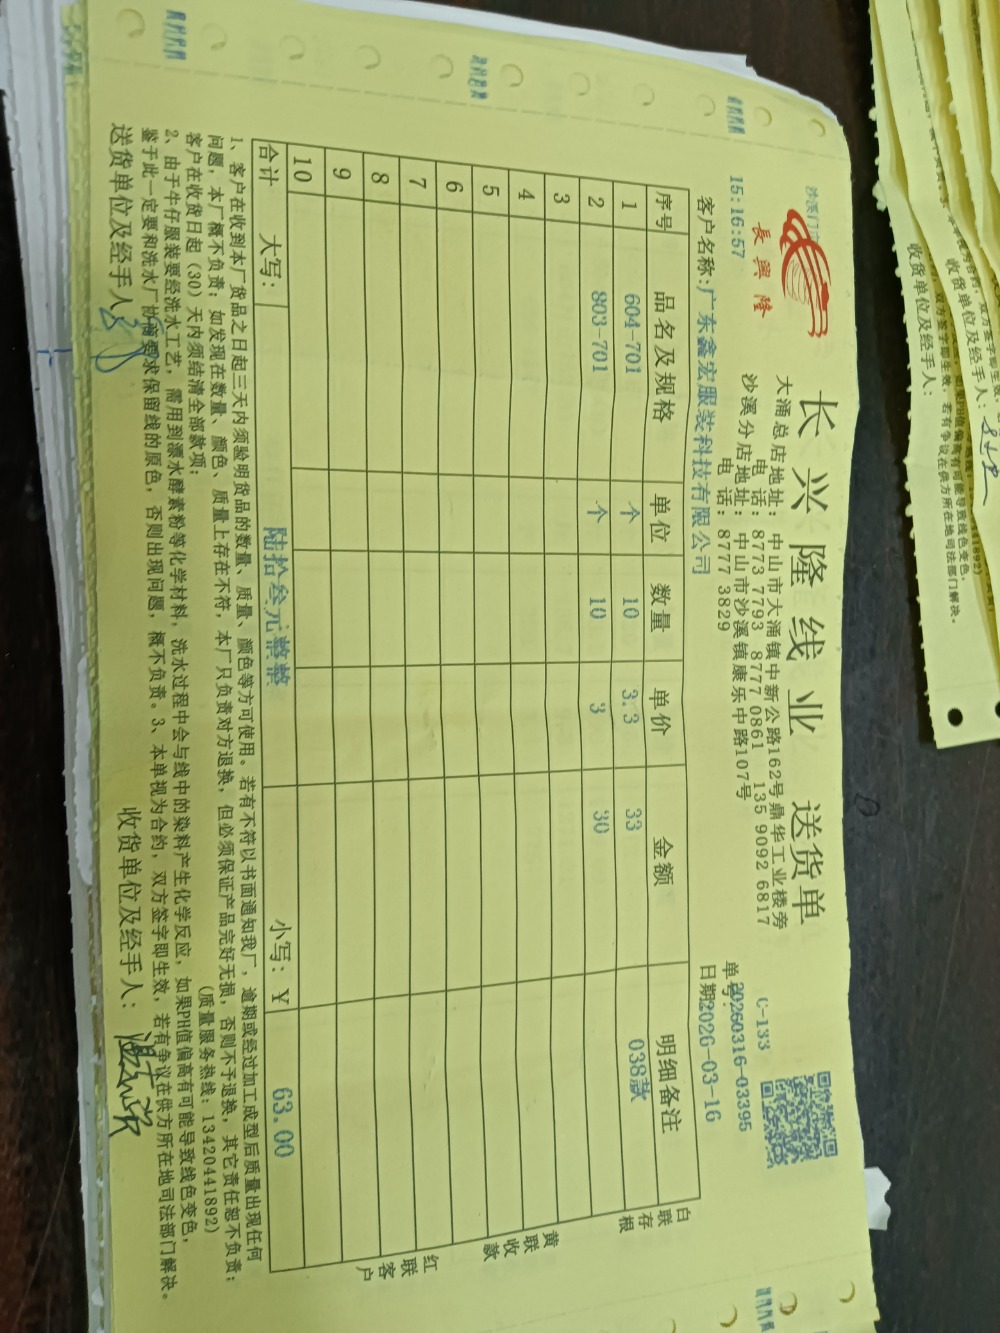 長興隆
长兴隆线业 送货单
大涌总店地址: 中山市大涌镇中新公路162号鼎华工业楼旁
电 话: 8773 7793 8777 0861 135 9092 6817
沙溪分店地址: 中山市沙溪镇康乐中路107号
电 话: 8777 3829
C-133
15:16:57
单号: 20260316-03395
客户名称: 广东鑫宏服装科技有限公司
日期: 2026-03-16
序号 品名及规格 单位 数量 单价 金额 明细备注
1 604-701 个 10 3.3 33 038款
2 803-701 个 10 3 30
3
4
5
6
7
8
9
10
合计 大写: 陆拾叁元整整 小写: ¥ 63.00
白联存根
黄联收款
红联客户
1、客户在收到本厂货品之日起三天内须验明货品的数量、质量、颜色等方可使用。若有不符以书面通知我厂, 逾期或经过加工成型后质量出现任何
问题, 本厂概不负责; 如发现在数量、颜色、质量上存在不符, 本厂只负责对方退换, 但必须保证产品完好无损, 否则不予退换, 其它责任恕不负责;
客户在收货日起(30)天内须结清全部款项; (质量服务热线: 13420441892)
2、由于牛仔服装要经洗水工艺, 需用到漂水酵素粉等化学材料, 洗水过程中会与线中的染料产生化学反应, 如果PH值偏高有可能导致线色变色,
鉴于此一定要和洗水厂协商要求保留线的原色, 否则出现问题, 概不负责。3、本单视为合约, 双方签字即生效, 若有争议在供方所在地司法部门解决。
送货单位及经手人:
收货单位及经手人:
收货单位及经手人:
收货单位及经手人: